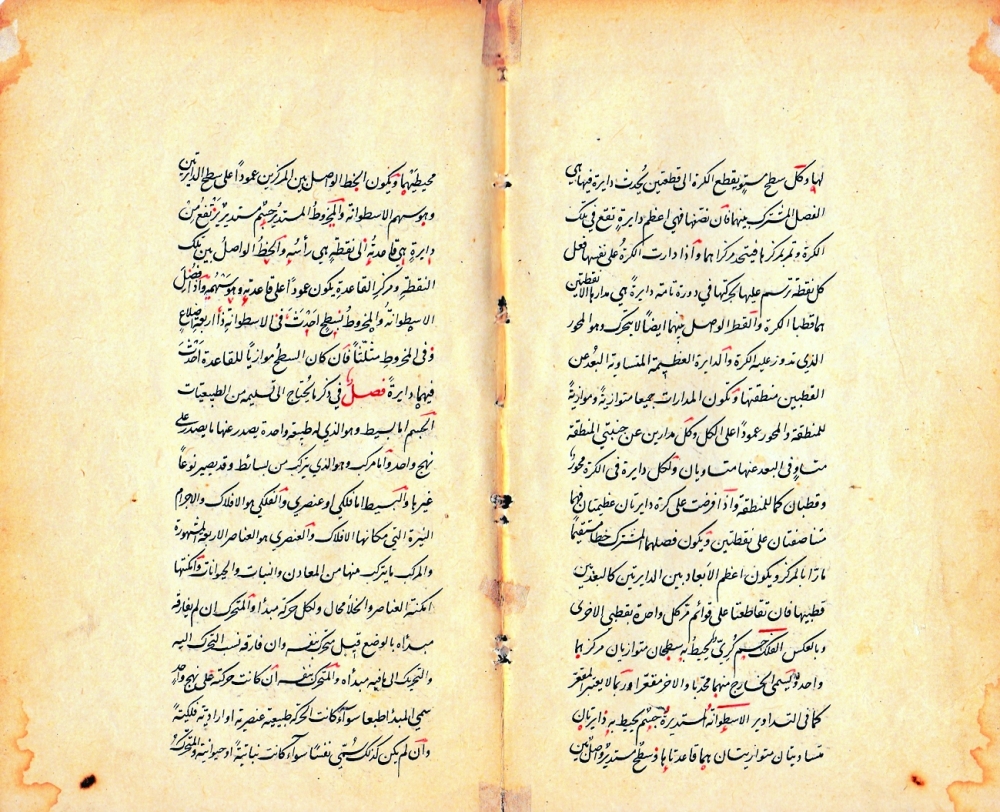 لها وكل سطح مستو يقطع الكرة الى قطعتين يحدث دايرة فيها هي
الفصل المشترك بينهما فان نصفها فهي اعظم دايرة تقع في تلك
الكرة وتمر بمركزها فيتحد مركزاهما واذا دارت الكرة على نفسها فعل
كل نقطة ترسم عليها بحركتها في دورة تامة دايرة هي مدارها الا نقطتين
هما قطبا الكرة والخط الواصل بينهما ايضاً لا يتحرك وهو المحور
الذي تدور عليه الكرة والدايرة العظيمة المتساوية البعد عن
القطبين منطقتها وتكون المدارات جميعا متوازية وموازية
للمنطقة والمحور عموداً على الكل وكل مدارين عن جنبتي المنطقة
متساوي البعد عنها متساويان ولكل دايرة في الكرة محور
وقطبان كما للمنطقة واذا فرضت على كرة دايرتان عظيمتان فهما
متناصفتان على نقطتين ويكون فصلهما المشترك خطا مستقيماً
مارّا بالمركز ويكون اعظم الأبعاد بين الدايرتين كالبعد بين
قطبيها فان تقاطعتا على قوائم مر كل واحدة بقطبي الاخرى
وبالعكس الفلك جسم كري يحيط به سطحان متوازيان مركزهما
واحد ويسمى الخارج منهما محدبا والاخر مقعرا وربما لا يعتبر المقعر
كما في التداوير الاسطوانة المستديرة جسم يحيط به دايرتان
متساويتان متوازيتان هما قاعدتاها وسطح مستدير واصل بين
محيطيهما ويكون الخط الواصل بين المركزين عموداً على سطح الدايرتين
وهو سهم الاسطوانة والمخروط المستدير جسم مستدير يرتفع من
دايرة هي قاعدته الى نقطة هي رأسه والخط الواصل بين تلك
النقطة ومركز القاعدة يكون عموداً على قاعدته وهو سهمه واذا فصل
الاسطوانة والمخروط بسطح احدث في الاسطوانة ذا اربعة اضلاع
وفي المخروط مثلثاً فان كان السطح موازيا للقاعدة احدث
فيهما دايرة فصل في ذكر ما يحتاج الى تسليمه من الطبيعيات
الجسم اما بسيط وهو الذي له طبيعة واحدة يصدر عنها ما يصدر على
نهج واحد واما مركب وهو الذي يتركب من بسائط وقد يصير نوعاً
غيرها والبسيط اما فلكي او عنصري والفلكي هو الافلاك والاجرام
النيرة التي مكانها الافلاك والعنصري هو العناصر الاربعة المشهورة
والمركب ما يتركب منها من المعادن والنبات والحيوانات وامكنتها
امكنة العناصر والخلا محال ولكل حركة مبدأ والمتحرك ان لم يفارقه
مبدأه بالوضع قيل تحرك بنفسه وان فارقه نسب التحرك اليه
والتحريك الى ما فيه مبدأه والمتحرك بنفسه ان كانت حركته على نهج واحد
سمي المبدأ طبعا سواء كانت الحركة طبيعية عنصرية او ارادية فلكية
وان لم يكن كذلك سمي نفسا سواء كانت نباتية او حيوانية والمتحرك